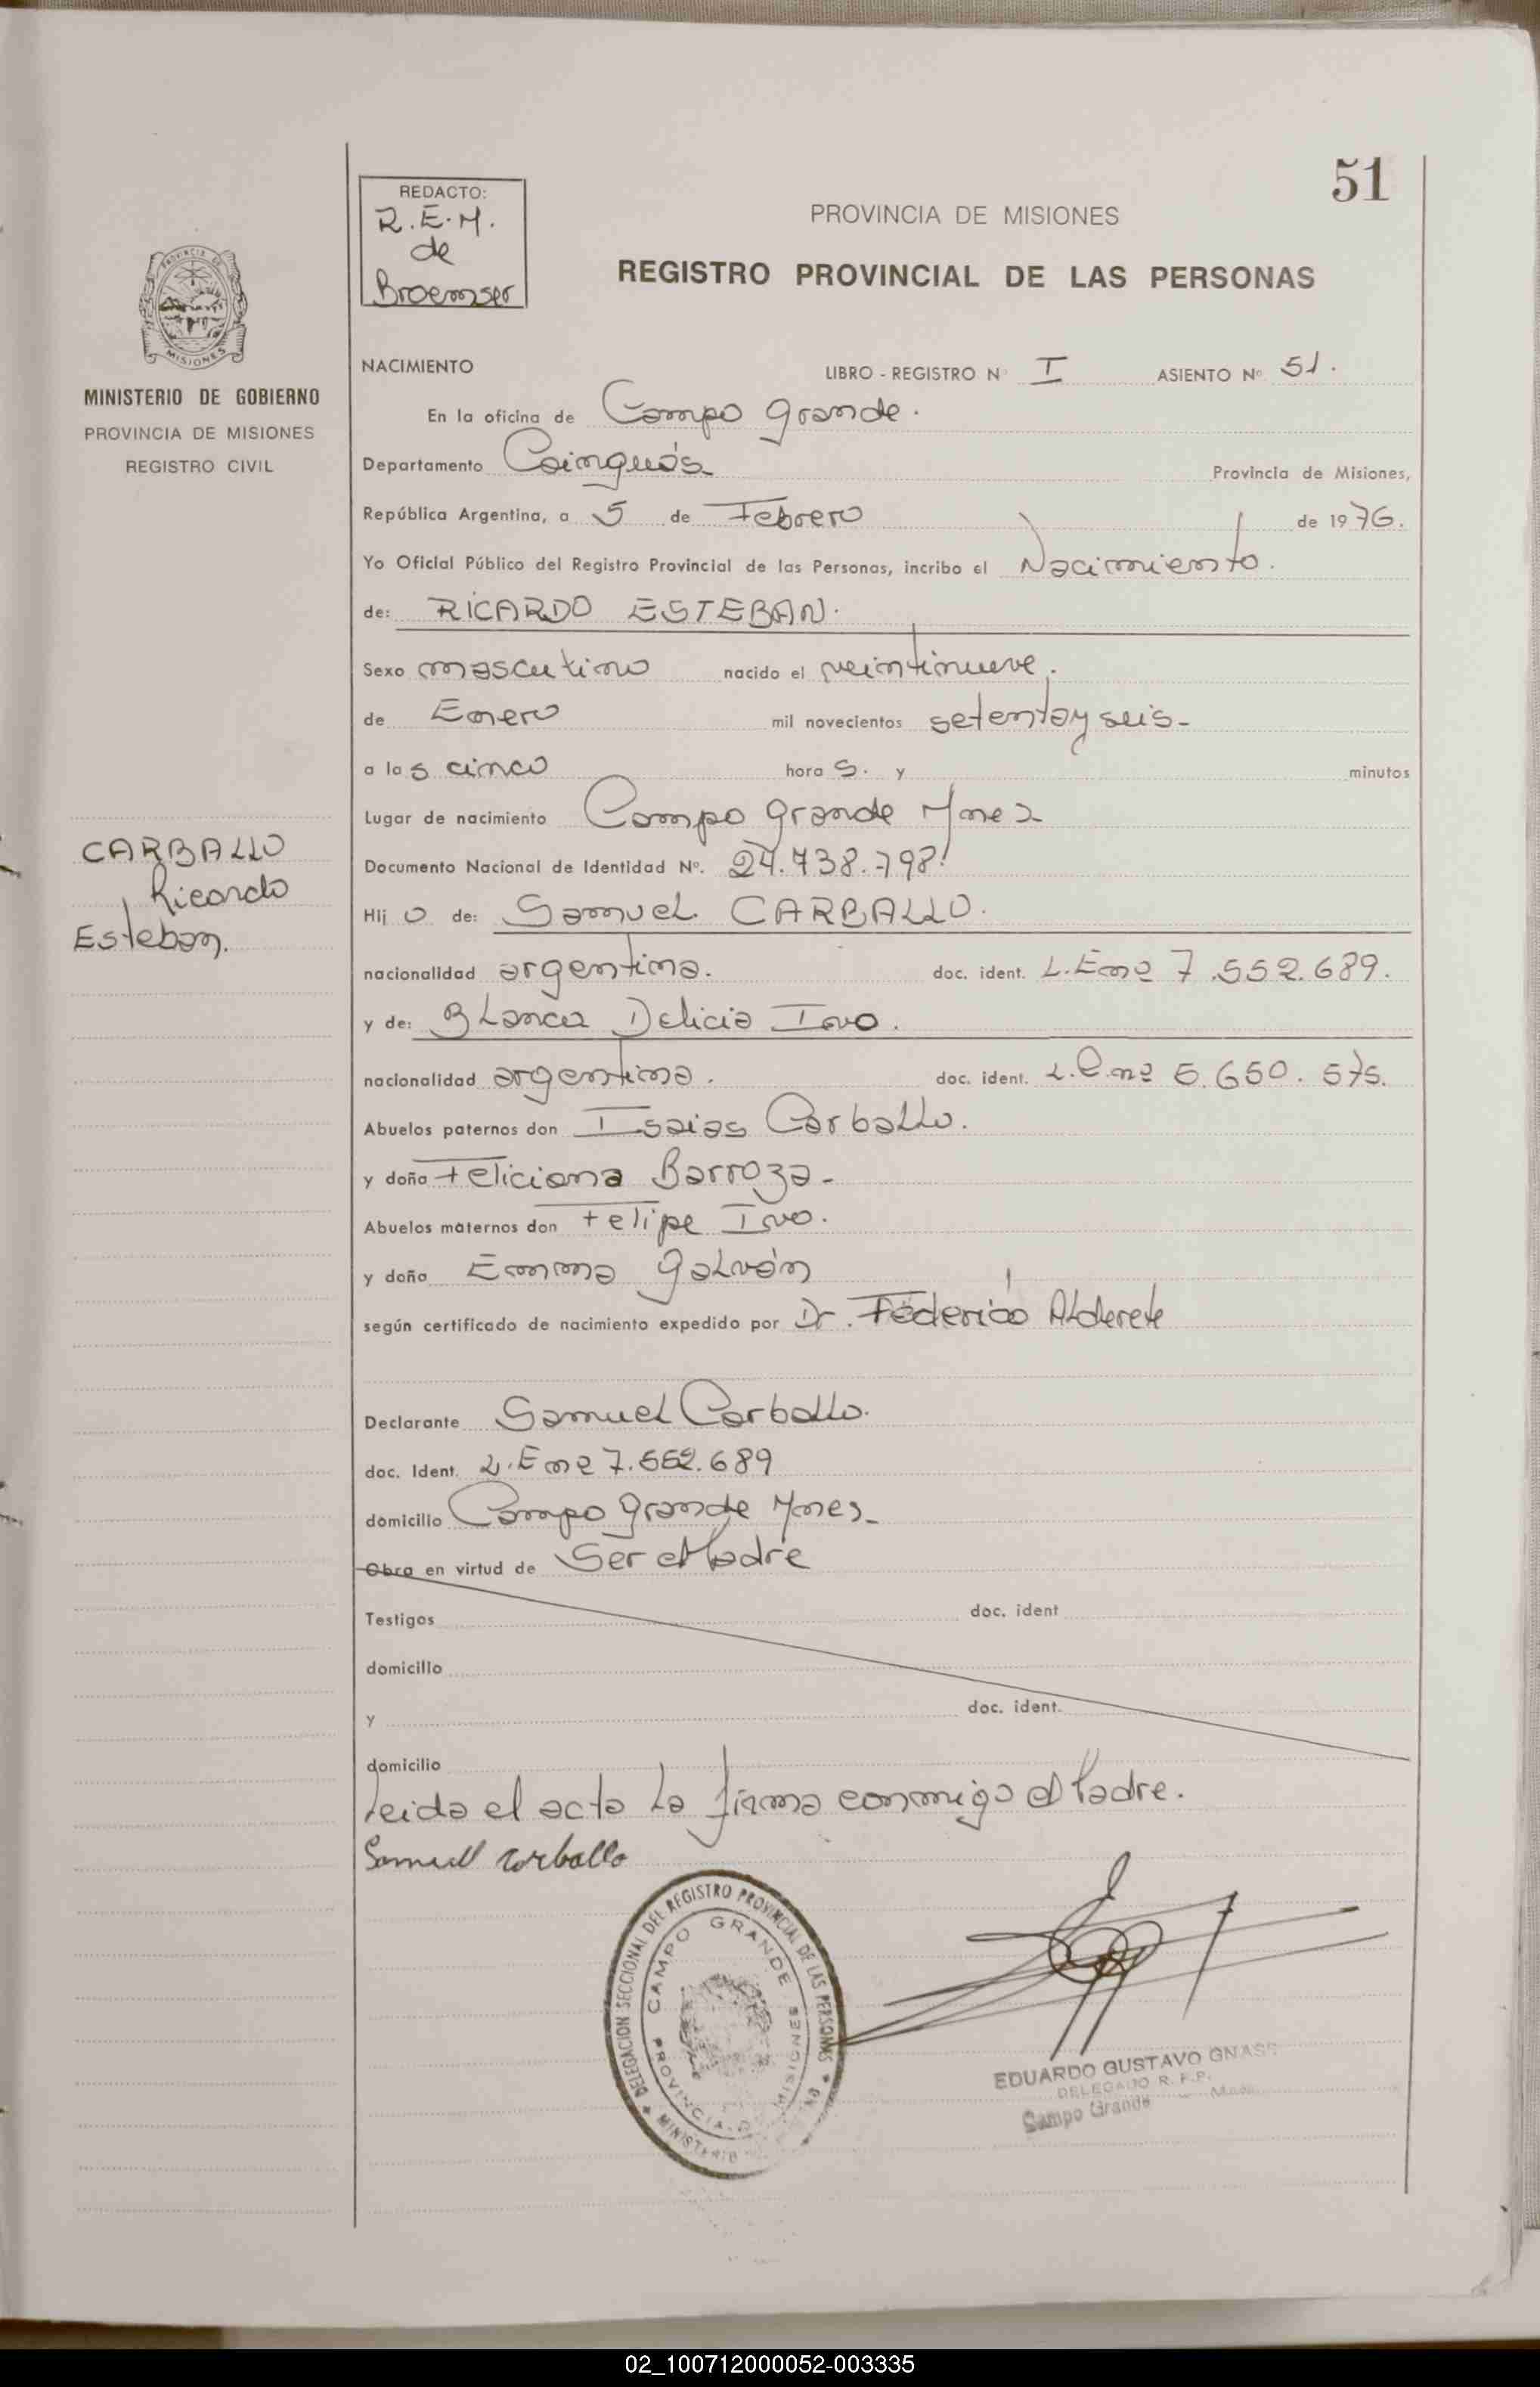 51
REDACTO:
R.E.M.
de
Broemser
PROVINCIA DE MISIONES
REGISTRO PROVINCIAL DE LAS PERSONAS
PROVINCIA DE
MISIONES
MINISTERIO DE GOBIERNO
PROVINCIA DE MISIONES
REGISTRO CIVIL
NACIMIENTO LIBRO - REGISTRO Nº I ASIENTO Nº 51.
En la oficina de Campo Grande.
Departamento Cainguás Provincia de Misiones,
República Argentina, a 5 de Febrero de 1976.
Yo Oficial Público del Registro Provincial de las Personas, incribo el Nacimiento.
de: RICARDO ESTEBAN.
Sexo masculino nacido el veintinueve.
de Enero mil novecientos setenta y seis-
a las cinco horas. y minutos
Lugar de nacimiento Campo Grande Mnes
Documento Nacional de Identidad Nº. 24.738.798.
CARBALLO
Ricardo
Esteban.
Hijo de: Samuel CARBALLO.
nacionalidad argentina. doc. ident. L.E nº 7.552.689.
y de: Blanca Delicia Ivo.
nacionalidad argentina. doc. ident. L.C. nº 5.650.575.
Abuelos paternos don Isaias Carballo.
y doña Feliciana Barroza-
Abuelos maternos don Felipe Ivo.
y doña Emma Galván
según certificado de nacimiento expedido por Dr. Federico Alderete
Declarante Samuel Carballo.
doc. Ident. L.E nº 7.552.689
domicilio Campo Grande Mnes-
Obra en virtud de Ser el Padre
Testigos doc. ident
domicilio
y doc. ident.
domicilio
Leida el acta la firma conmigo el Padre.
Samuel Carballo
DELEGACION SECCIONAL DEL REGISTRO PROVINCIAL DE LAS PERSONAS
CAMPO GRANDE
PROVINCIA D MISIONES
EDUARDO GUSTAVO GNASS
DELEGADO R. P.P.
Campo Grande
02_100712000052-003335